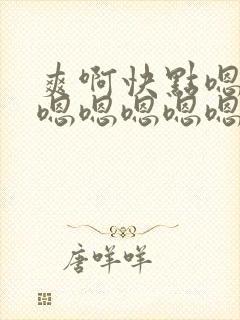 爽啊快點嗯
嗯嗯嗯嗯嗯
唐咩咩